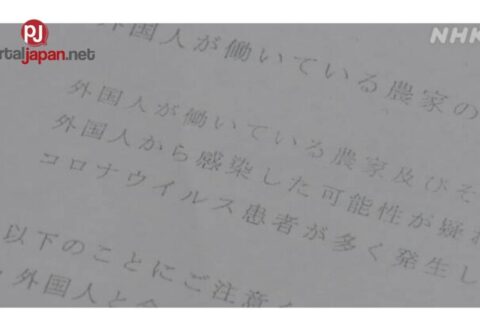 PJ
rtaljapan.net
NHK
外国人が働いている農家の
外国人が働いている農家及びそ
外国人から感染した可能性が疑わ
コロナウイルス患者が多く発生し
以下のことにご注意
外国人と会